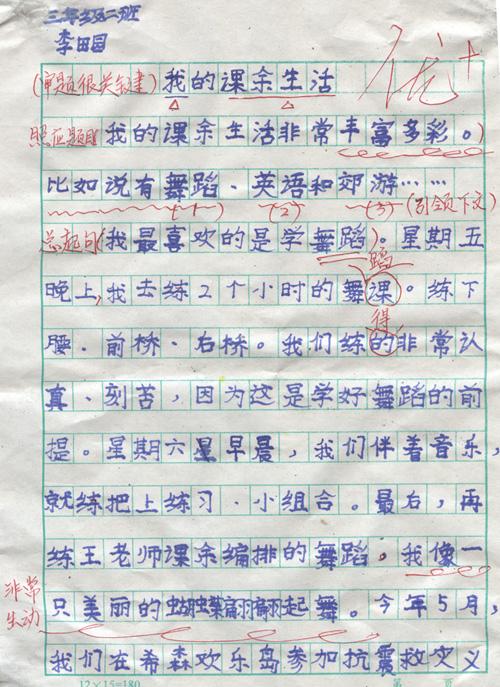 三年级二班
李田园
(审题很关键) 我的课余生活
照应题目 我的课余生活非常丰富多彩。)
比如说有舞蹈、英语和郊游……
(1) (2) (3) (引领下文)
总起句(我最喜欢的是学舞蹈)。星期五
蹈
晚上,我去练2个小时的舞课。练下
得
腰、前桥、右桥。我们练的非常认
真、刻苦,因为这是学好舞蹈的前
提。星期六星早晨,我们伴着音乐,
就练把上练习、小组合。最后,再
练王老师课余编排的舞蹈。我像一
非常生动
只美丽的蝴蝶翩翩起舞。今年5月,
我们在希森欢乐岛参加抗震救灾义
12×15=180 第 页
优+